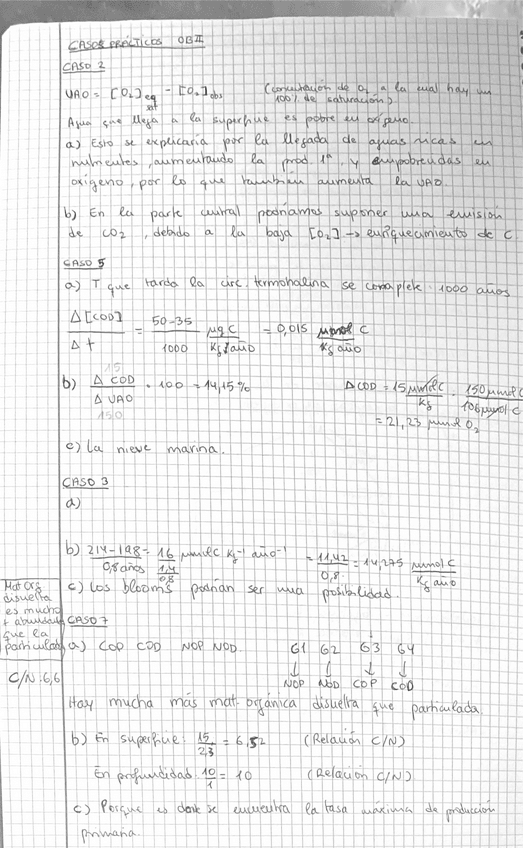 CASOS PRÁCTICOS OBII
CASO 2
UAO = [O2]eq sat - [O2]obs (concentración de O2 a la cual hay un 100% de saturación)
Agua que llega a la superficie es pobre en oxígeno.
a) Esto se explicaría por la llegada de aguas ricas en
nutrientes, aumentando la prod. 1ª, y empobrecidas en
oxígeno, por lo que también aumenta la UAO.
b) En la parte central podríamos suponer una emisión
de CO2, debido a la baja [O2] → enriquecimiento de C
CASO 5
a) T que tarda la circ. termohalina se complete: 1000 años
Δ[COD] / Δt = 50-35 / 1000 μg C / Kg/año = 0,015 μmol C / Kg año
b) 15 ΔCOD / ΔUAO 150 · 100 = 14,15% ΔCOD = 15 μmol C / Kg · 150 μmol / 106 μmol C
= 21,23 μmol O2
c) La nieve marina.
CASO 3
a)
b) 214-198 / 0,8 años = 16 / 1,4 / 0,8 μmol C Kg-1 año-1 = 11,42 / 0,8 = 14,275 μmol C / Kg año
c) Los blooms podrían ser una posibilidad.
Mat org
disuelta
es mucho
+ abundante
que la
particulada
C/N: 6,6
CASO 7
a) COP COD NOP NOD. G1 G2 G3 G4
↓ ↓ ↓ ↓
NOP NOD COP COD
Hay mucha más mat. orgánica disuelta que particulada.
b) En superficie: 15 / 2,3 = 6,52 (Relación C/N)
En profundidad: 10 / 1 = 10 (Relación C/N)
c) Porque es donde se encuentra la tasa máxima de producción
primaria.